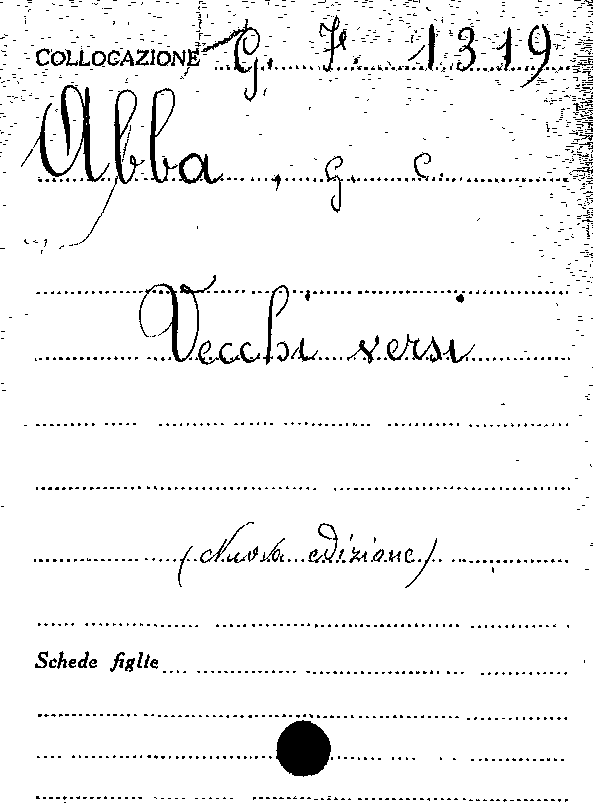 COLLOCAZIONE G. F. 1319
Abba, G. C.
Vecchi versi
(Nuova edizione)
Schede figlie